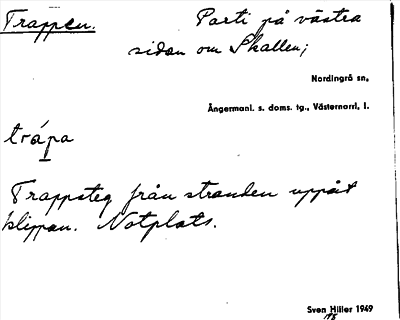 Trappen. Parti på västra
sidan om Skallen;
Nordingrå sn,
Ångermanl. s. doms. tg., Västernorrl. l.
trápa
Trappsteg från stranden uppåt
klippan. Notplats.
Sven Hiller 1949